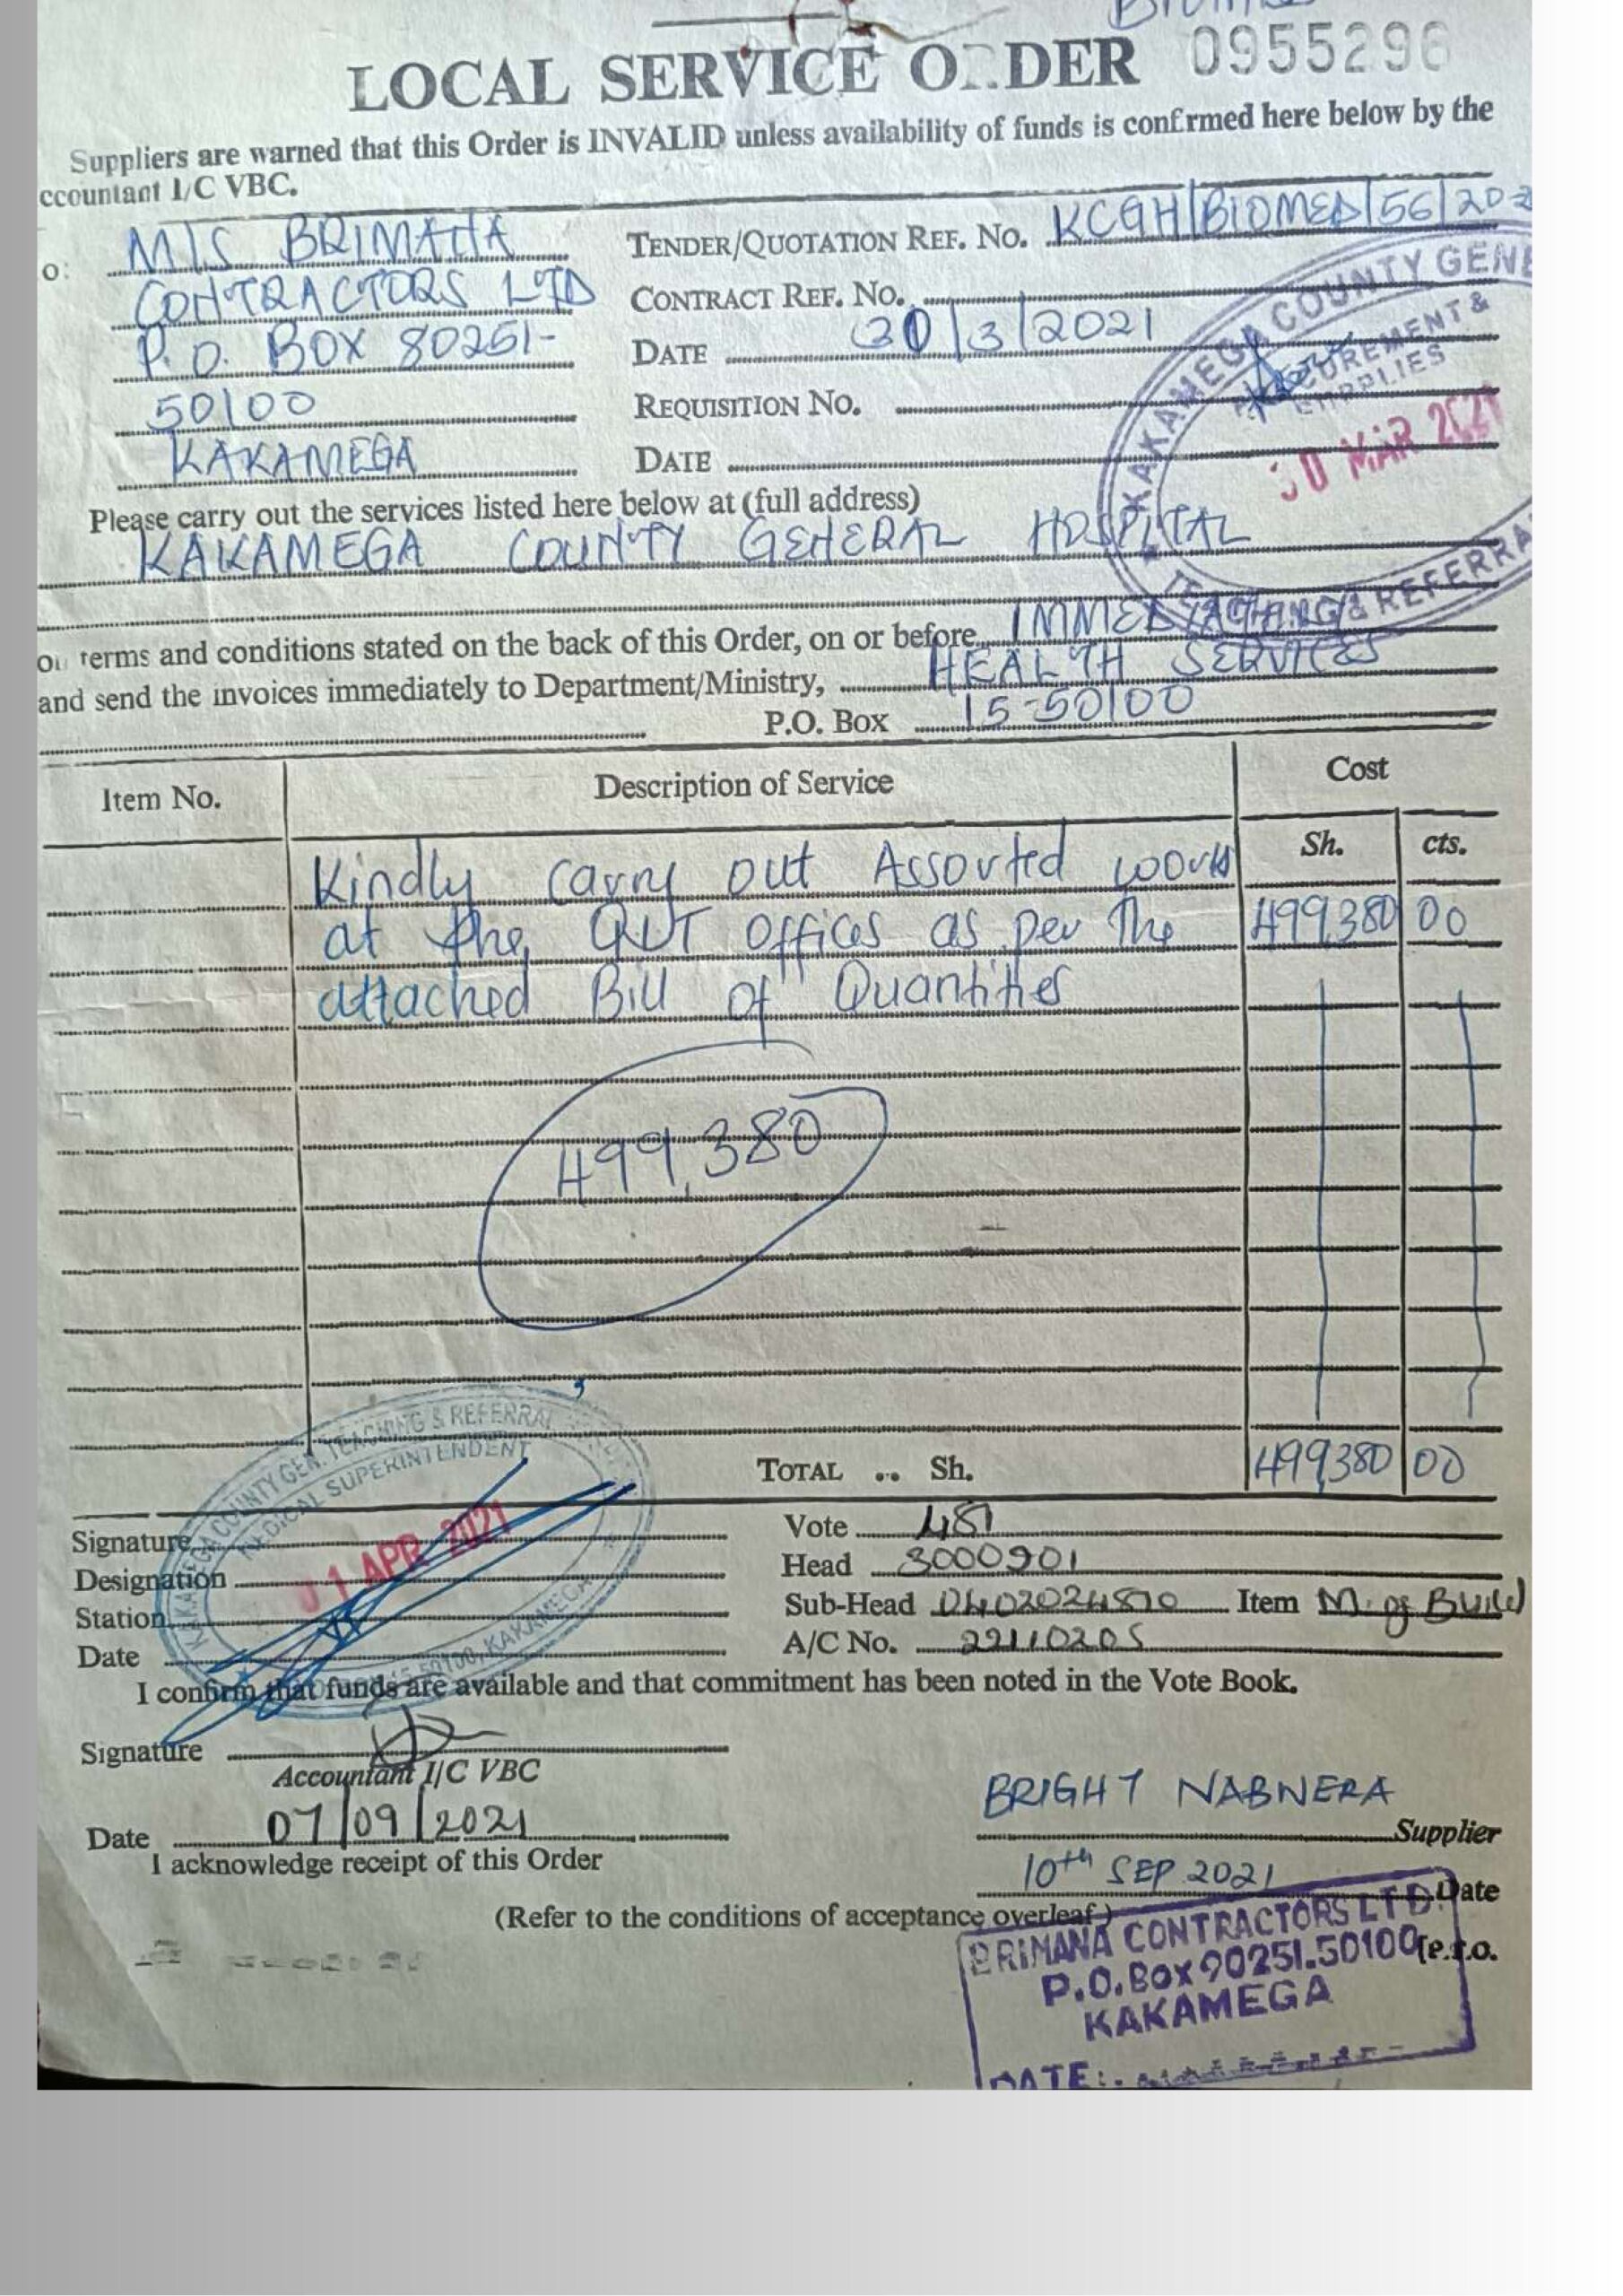 LOCAL SERVICE O..DER 0955296
Suppliers are warned that this Order is INVALID unless availability of funds is confirmed here below by the
ccountant I/C VBC.
o: M/S BRIMANA
CONTRACTORS LTD
P.O. BOX 80251-
50100
KAKAMEGA
TENDER/QUOTATION REF. No. KCGH/BIOMED/56/202
CONTRACT REF. No.
DATE 30/3/2021
REQUISITION No.
DATE
KAKAMEGA COUNTY GENE
PROCUREMENT &
SUPPLIES
30 MAR 2021
TEACHING & REFERRA
Please carry out the services listed here below at (full address)
KAKAMEGA COUNTY GENERAL HOSPITAL
on terms and conditions stated on the back of this Order, on or before
and send the invoices immediately to Department/Ministry, HEALTH SERVICES
P.O. Box 15-50100
Item No. Description of Service Cost
Sh. cts.
Kindly carry out Assorted works
at the offices as per the 499,380 00
attached Bill of Quantities
499,380
TOTAL .. Sh. 499,380 00
KAKAMEGA COUNTY GEN. TEACHING & REFERRAL
MEDICAL SUPERINTENDENT
01 APR 2021
50100, KAKAMEGA
Signature
Designation
Station
Date
Vote
Head 3000901
Sub-Head Item M. of Build
A/C No. 22110205
I confirm that funds are available and that commitment has been noted in the Vote Book.
Signature
Accountant I/C VBC
Date 07/09/2021
I acknowledge receipt of this Order
BRIGHT NABWERA
Supplier
10th SEP 2021
Date
(Refer to the conditions of acceptance overleaf)
[P.T.O.
BRIMANA CONTRACTORS LTD
P.O.BOX 90251.50100
KAKAMEGA
DATE: